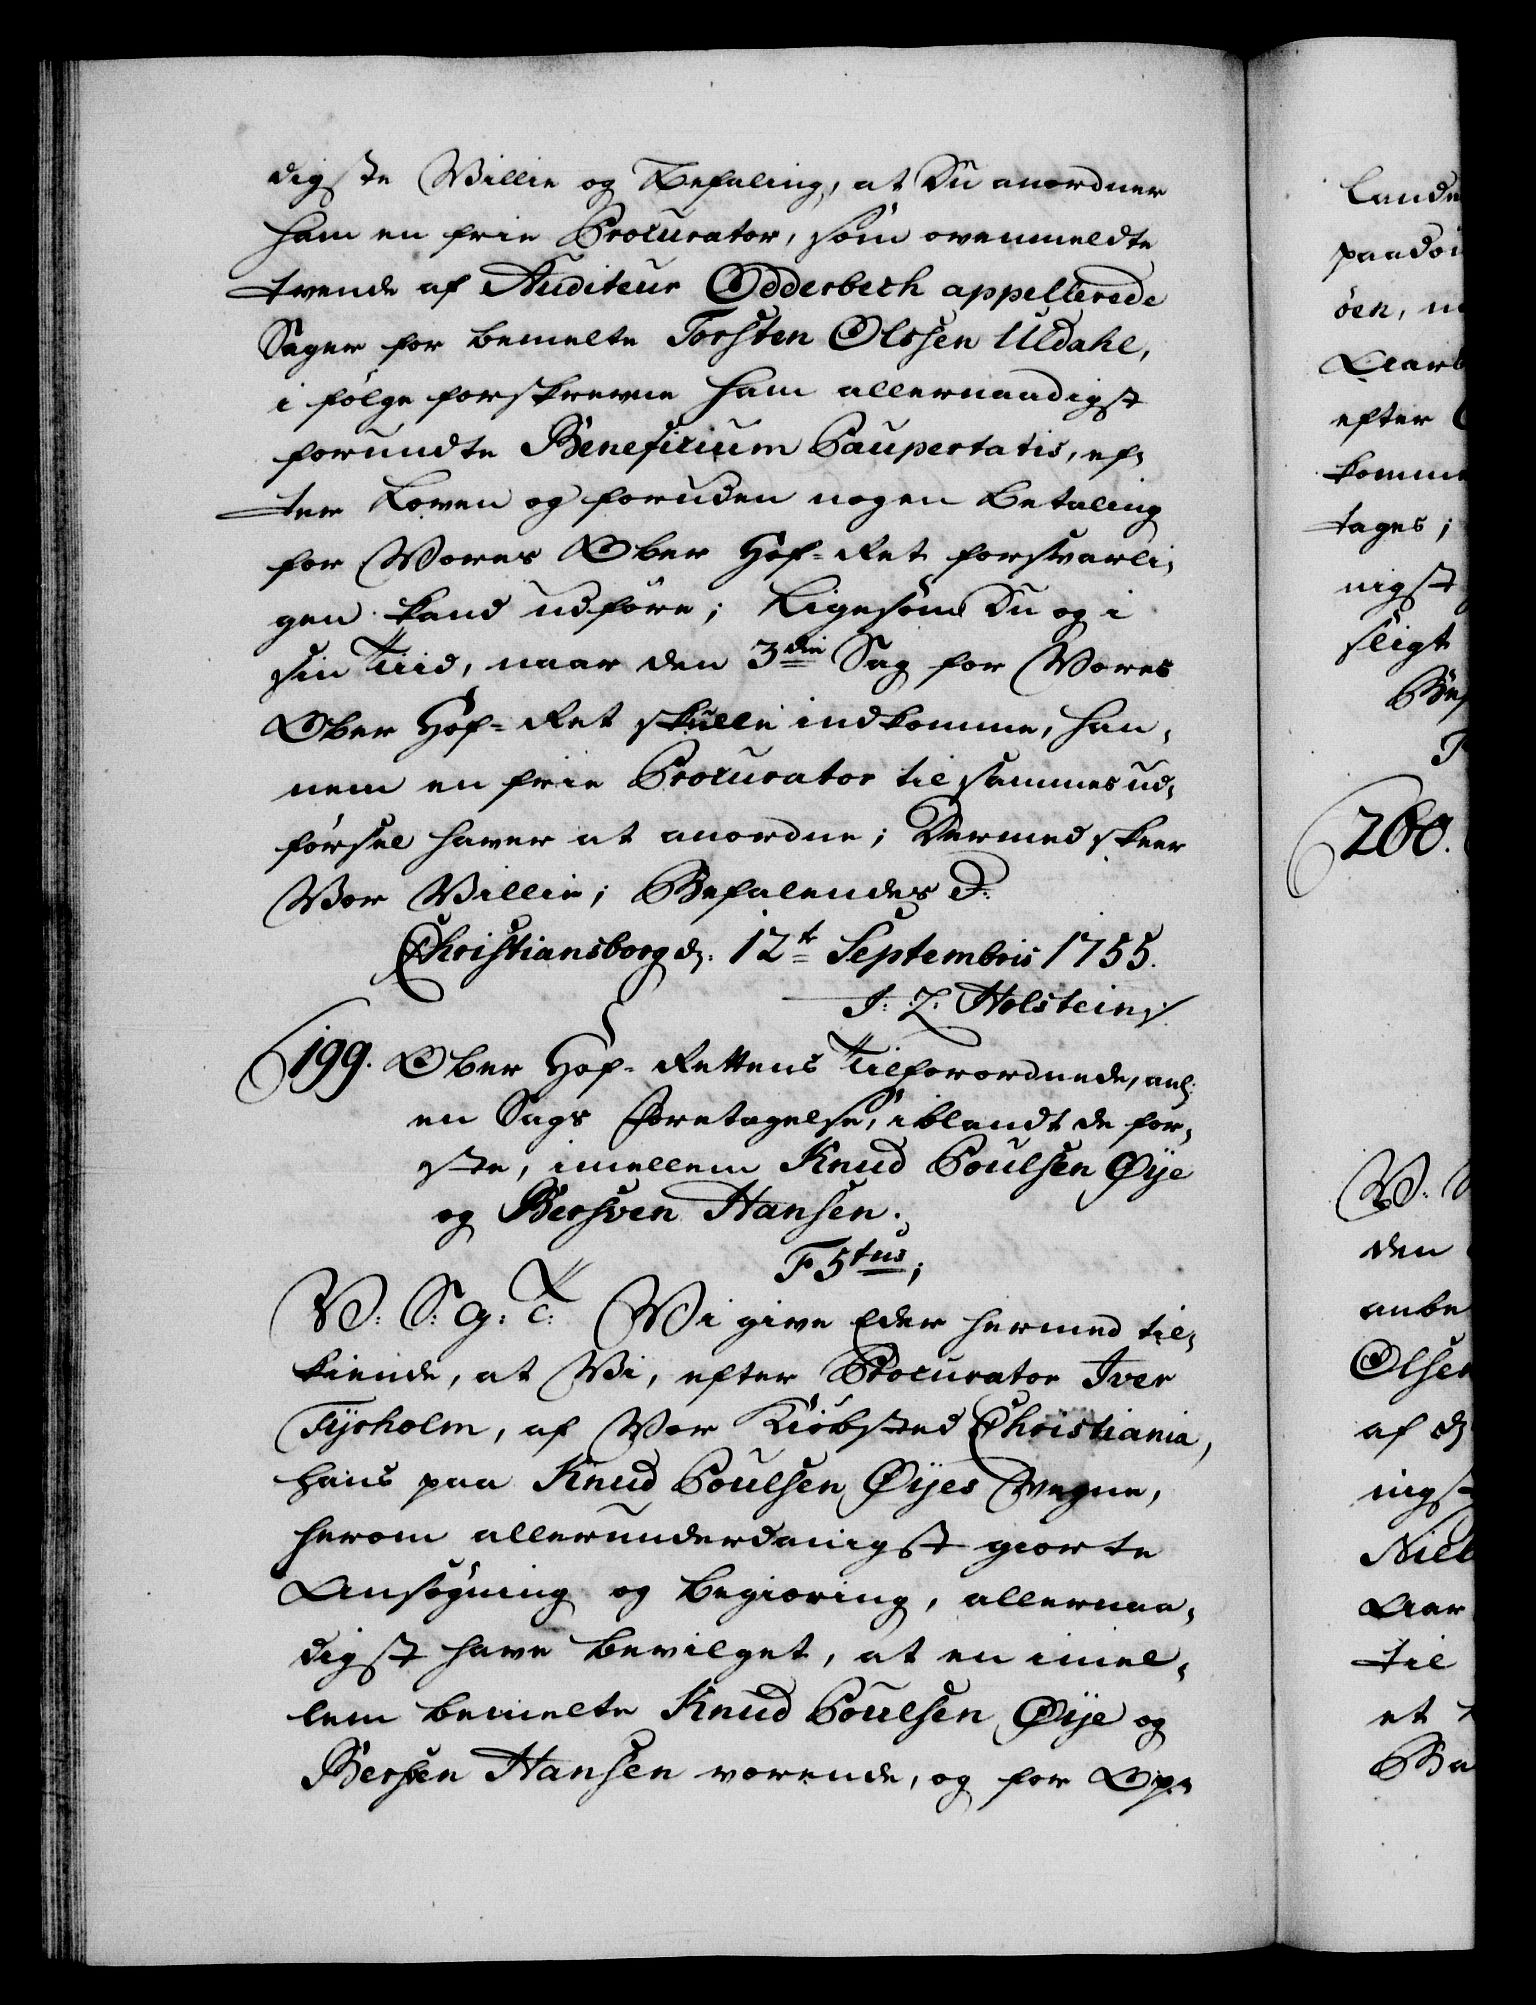 digste Villie og Befaling, at Du anordner
ham en frie Procurator, som ovenmeldte
tvende af Auditeur Odderbech appellerede
Sager for bemelte Torsten Olssen Uldahl,
i følge forskrevne ham allernaadigst
forundte Beneficium Paupertatis, ef-
ter Loven og foruden nogen Betaling
for Vores Ober Hof-Ret forsvarli-
gen kand udføre; Ligesom Du og i
sin Tiid, naar den 3die Sag for Vores
Ober Hof-Ret skulle indkomme, han-
nem en frie Procurator til sammes ud-
førsel haver at anordne; Dermed skeer
Vor Villie; Befalendes d:
Christiansborg d: 12te Septembris 1755.
J: L: Holstein /
199. Ober Hof-Rettens Tilforordnede, anl:
en Sags Foretagelse, iblandt de før-
ste, imellem Knud Poulsen Øije
og Bersven Hansen.
F 5tus;
V: S: G: T: Vi give Eder hermed til-
kiende, at Vi, efter Procurator Iver
Tyrholm, af Vor Kiöbsted Christiania,
hans paa Knud Poulsen Øijes Vegne,
herom allerunderdanigst giorte
Ansøgning og begiæring, allernaa-
digst have bevilget, at en imel-
lem bemelte Knud Poulsen Øije og
Bersven Hansen værende, og for Op-
Lande
efter
komme
tages;
nigst
sligt
200.
V:
den
anbe
Olsen
af d:
Niel
Aar
til
et